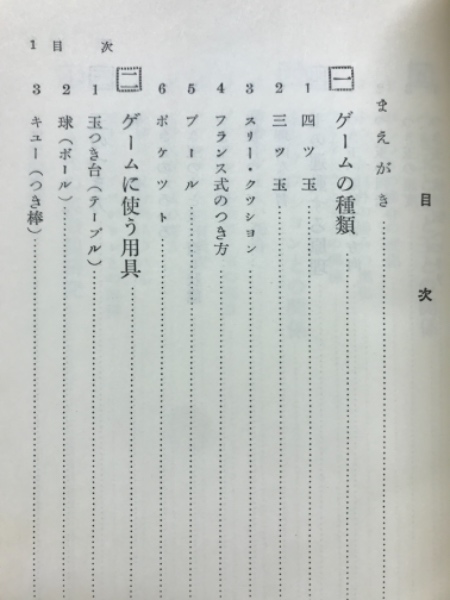 目次
まえがき
一 ゲームの種類
1 四ツ玉
2 三ツ玉
3 スリー・クツシヨン
4 フランス式のつき方
5 プール
6 ポケツト
二 ゲームに使う用具
1 玉つき台(テーブル)
2 球(ボール)
3 キュー(つき棒)
1 目次